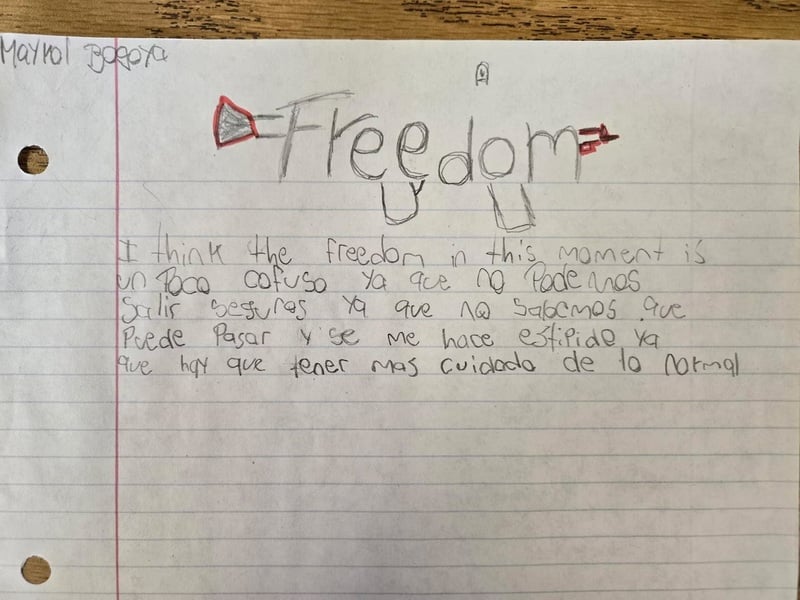 Maykol Bogoya
Freedom
I think the freedom in this moment is
un Poco cofuso ya que no Podemos
Salir seguros ya que no sabemos que
Puede Pasar y se me hace estipido ya
que hay que tener mas cuidado de lo normal